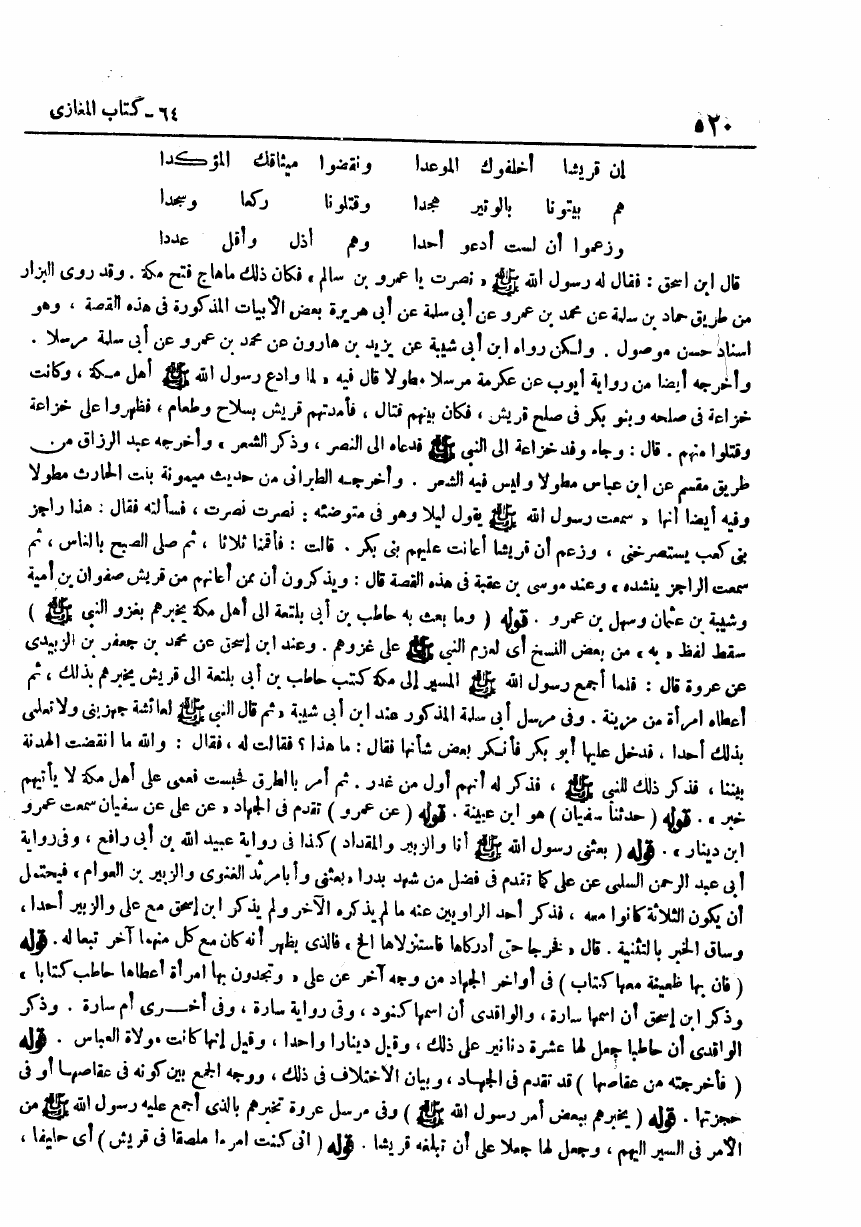 ٥٢٠ ٦٤ - كتاب المغازى
إن قريشا أخلفوك الموعدا ونقضوا ميثاقك المؤكدا
هم بيتونا بالوتير هجدا وقتلونا ركعا وسجدا
وزعموا أن لست أدعو أحدا وهم أذل وأقل عددا
قال ابن اسحق : فقال له رسول الله ﷺ « نصرت يا عمرو بن سالم » فكان ذلك ماهاج فتح مكة . وقد روى البزار
من طريق حماد بن سلمة عن محمد بن عمرو عن أبى سلمة عن أبى هريرة بعض الأبيات المذكورة فى هذه القصة ، وهو
اسناد حسن موصول . ولكن رواه ابن أبى شيبة عن يزيد بن هارون عن محمد بن عمرو عن أبى سلمة مرسلا .
وأخرجه أيضا من رواية أيوب عن عكرمة مرسلا مطولا قال فيه « لما وادع رسول الله ﷺ أهل مكة ، وكانت
خزاعة فى صلحه وبنو بكر فى صلح قريش ، فكان بينهم قتال ، فأمدتهم قريش بسلاح وطعام ، فظهروا على خزاعة
وقتلوا منهم . قال : وجاء وفد خزاعة الى النبى ﷺ فدعاه الى النصر ، وذكر الشعر » وأخرجه عبد الرزاق من
طريق مقسم عن ابن عباس مطولا وليس فيه الشعر . وأخرجه الطبرانى من حديث ميمونة بنت الحارث مطولا
وفيه أيضا أنها « سمعت رسول الله ﷺ يقول ليلا وهو فى متوضئه : نصرت نصرت ، فسألته فقال : هذا راجز
بنى كعب يستصرخنى ، وزعم أن قريشا أعانت عليهم بنى بكر . قالت : فأقمنا ثلاثا ، ثم صلى الصبح بالناس ، ثم
سمعت الراجز ينشده » وعند موسى بن عقبة فى هذه القصة قال : ويذكرون أن ممن أعانهم من قريش صفوان بن أمية
وشيبة بن عثمان وسهل بن عمرو . قوله ( وما بعث به حاطب بن أبى بلتعة الى أهل مكة يخبرهم بغزو النبى ﷺ )
سقط لفظ « به » من بعض النسخ أى لعزم النبى ﷺ على غزوهم . وعند ابن إسحق عن محمد بن جعفر بن الزبيدى
عن عروة قال : فلما أجمع رسول الله ﷺ المسير إلى مكة كتب حاطب بن أبى بلتعة الى قريش يخبرهم بذلك ، ثم
أعطاه امرأة من مزينة . وفى مرسل أبى سلمة المذكور عند ابن أبى شيبة « ثم قال النبى ﷺ لعائشة جهزينى ولا تعلمى
بذلك أحدا ، فدخل عليها أبو بكر فأنكر بعض شأنها فقال : ما هذا ؟ فقالت له ، فقال : والله ما انقضت الهدنة
بيننا ، فذكر ذلك للنبى ﷺ ، فذكر له أنهم أول من غدر . ثم أمر بالطرق فحبست فعمى على أهل مكة لا يأتيهم
خبر » . قوله ( حدثنا سفيان ) هو ابن عيينة . قوله ( عن عمرو ) تقدم فى الجهاد « عن على عن سفيان سمعت عمرو
ابن دينار » . قوله ( بعثنى رسول الله ﷺ أنا والزبير والمقداد ) كذا فى رواية عبيد الله بن أبى رافع ، وفى رواية
أبى عبد الرحمن السلمى عن على كما تقدم فى فضل من شهد بدرا « بعثنى وأبا مرثد الغنوى والزبير بن العوام » فيحتمل
أن يكون الثلاثة كانوا معه ، فذكر أحد الراويين عنه ما لم يذكره الآخر ولم يذكر ابن إسحق مع على والزبير أحدا ،
وساق الخبر بالتثنية . قال « فخرجا حتى أدركاها فاستنزلاها الخ » فالذى يظهر أنه كان مع كل منهما آخر تبعا له . قوله
( فان بها ظعينة معها كتاب ) فى أواخر الجهاد من وجه آخر عن على « وتجدون بها امرأة أعطاها حاطب كتابا »
وذكر ابن إسحق أن اسمها سارة ، والواقدى أن اسمها كنود ، وفى رواية سارة ، وفى أخرى أم سارة . وذكر
الواقدى أن حاطبا جعل لها عشرة دنانير على ذلك ، وقيل دينارا واحدا ، وقيل إنها كانت مولاة العباس . قوله
( فأخرجته من عقاصها ) قد تقدم فى الجهاد ، وبيان الاختلاف فى ذلك ، ووجه الجمع بين كونه فى عقاصها أو فى
حجزتها . قوله ( يخبرهم ببعض أمر رسول الله ﷺ ) وفى مرسل عروة تخبرهم بالذى أجمع عليه رسول الله ﷺ من
الأمر فى السير اليهم ، وجعل لها جعلا على أن تبلغه قريشا . قوله ( انى كنت امرءا ملصقا فى قريش ) أى حليفا ،